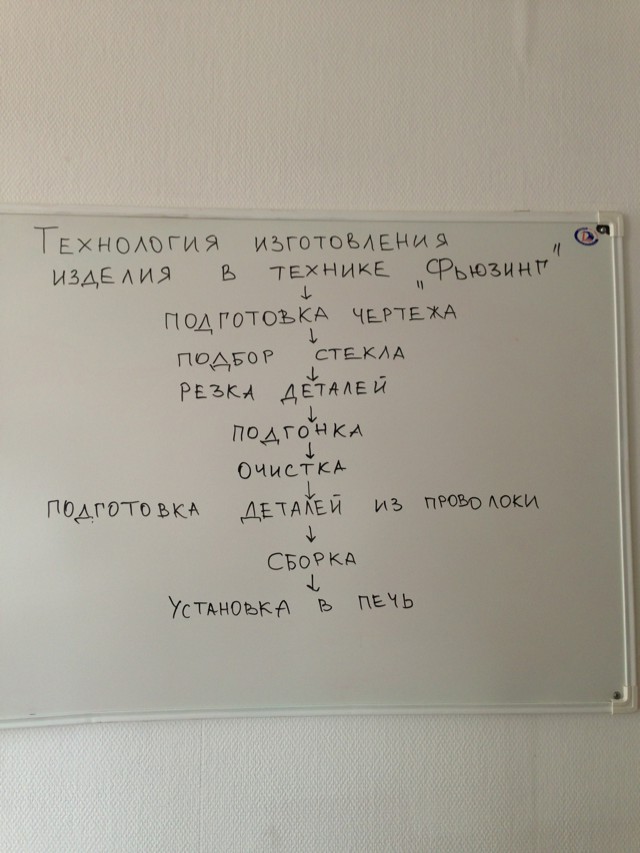 Технология изготовления
изделия в технике „Фьюзинг"
↓
подготовка чертежа
↓
подбор стекла
↓
резка деталей
↓
подгонка
↓
очистка
↓
подготовка деталей из проволоки
↓
сборка
↓
установка в печь